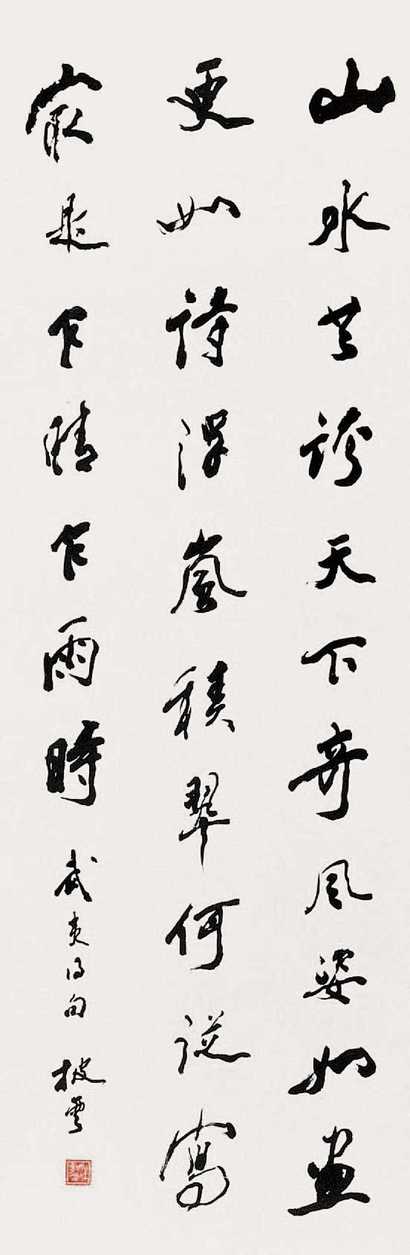 山水共誇天下奇風姿如畫
更如詩浮嵐積翠何從寫
最是乍晴乍雨時
武夷得句 披雲